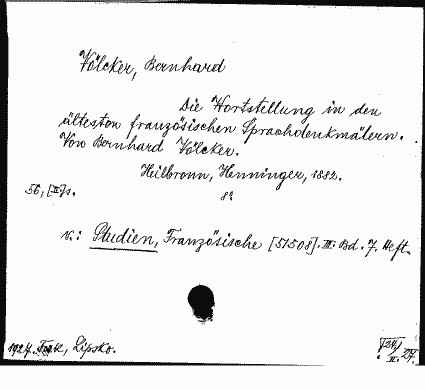 Völcker, Bernhard
Die Wortstellung in den
ältesten französischen Sprachdenkmälern.
Von Bernhard Völcker.
Heilbronn, Henninger, 1882.
56, [II] s. 8º
v.: Studien, Französische [51508]. III. Bd. 7. Heft.
1927. Lipsko.